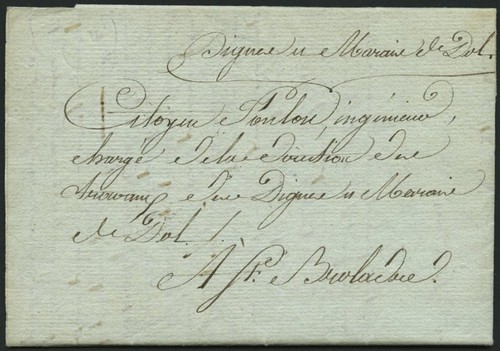 Digues et Marais de Dol.
Citoyen ingénieur,
chargé de la direction des
travaux des Digues et Marais
de Dol.
À St.